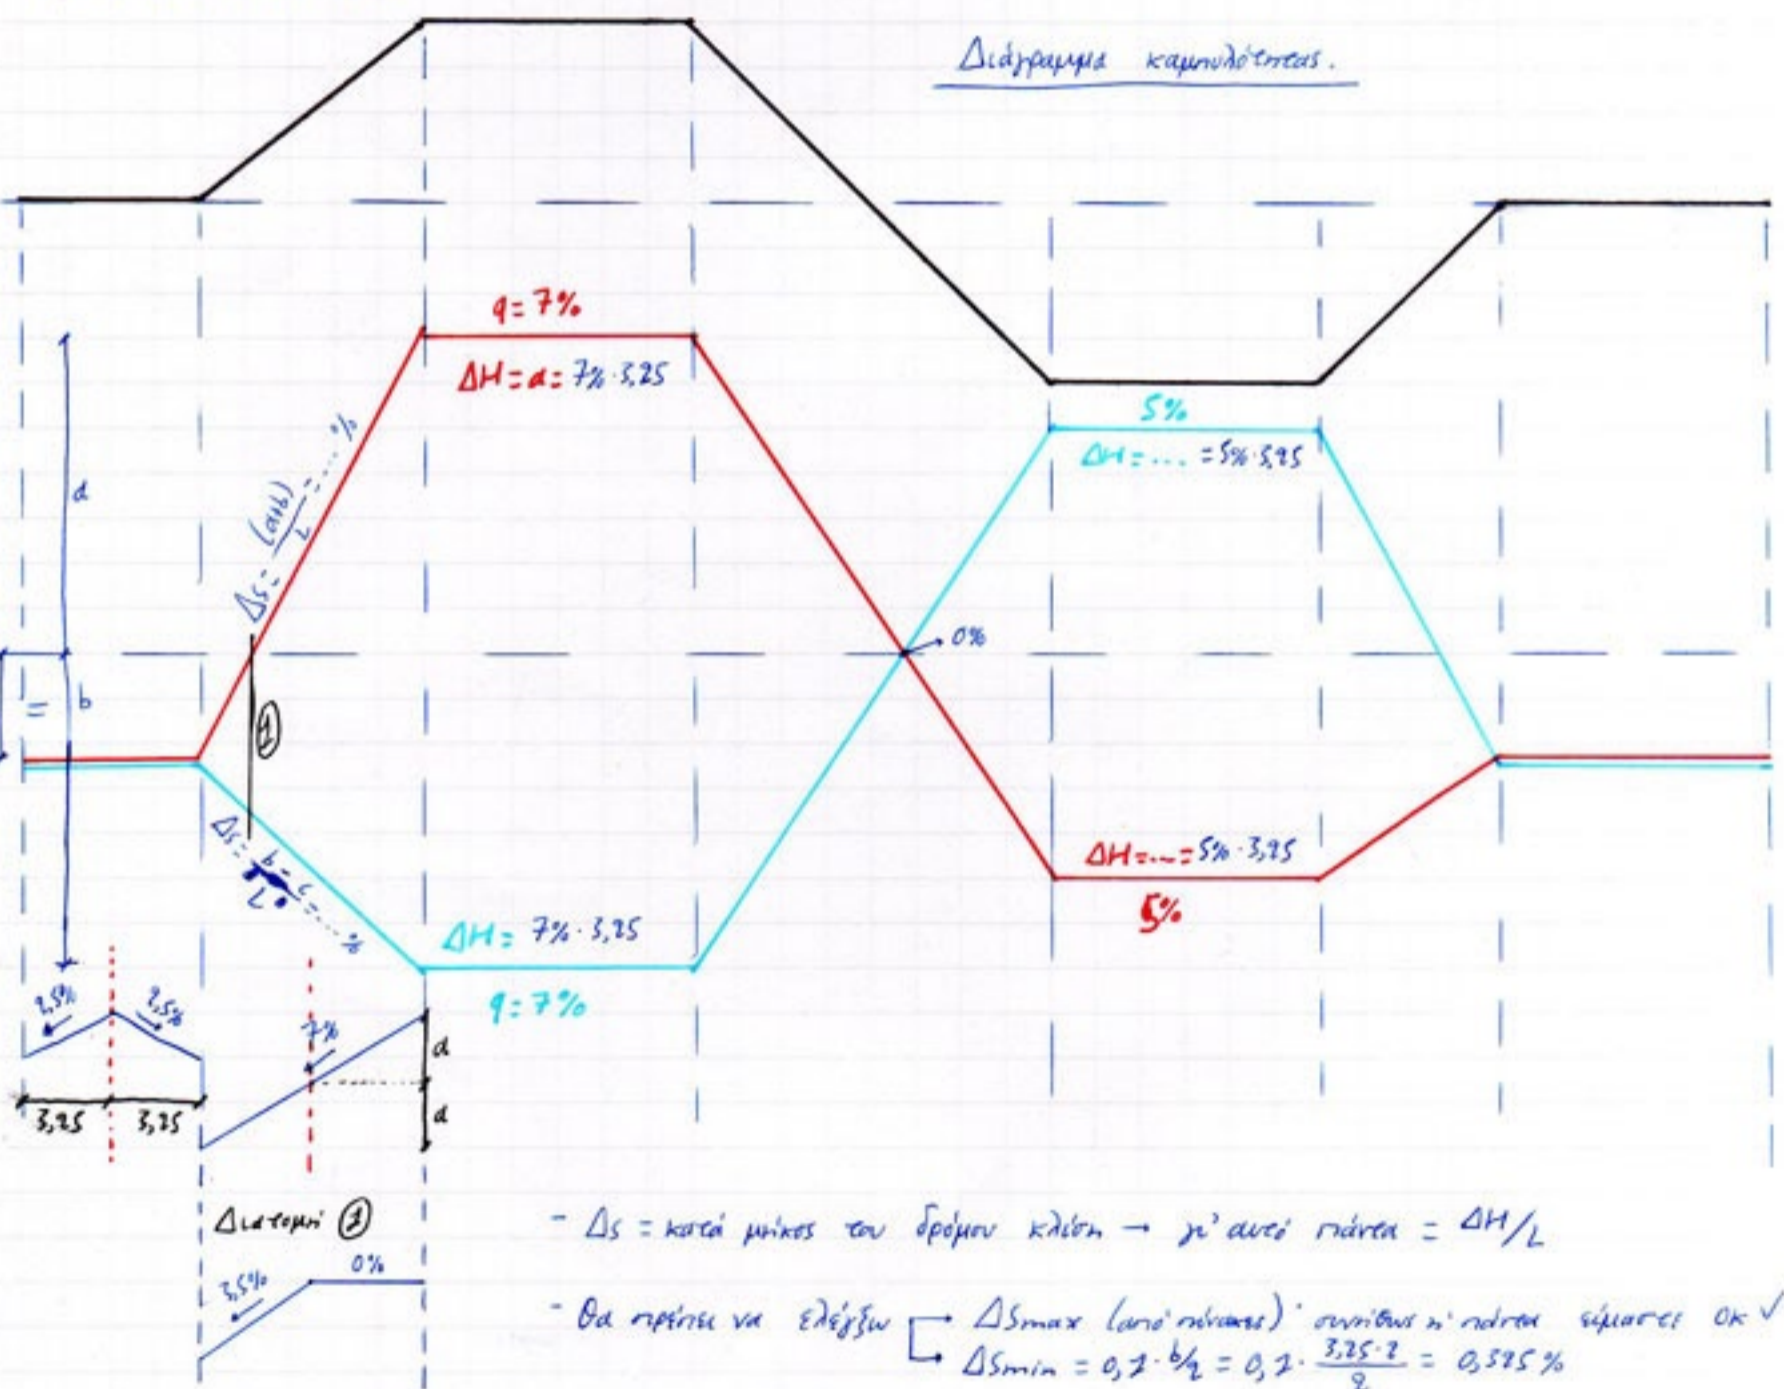 Διάγραμμα καμπυλότητας.
q = 7%
ΔH = a = 7% · 3,25
5%
ΔH = .... = 5% · 3,25
Δs = (a+b)/L = ....%
d
0%
b
=
①
Δs = b-c/L = ....%
ΔH = .... = 5% · 3,25
5%
ΔH = 7% · 3,25
q = 7%
2,5%
2,5%
7%
d
d
3,25
3,25
Διατομή ①
- Δs = κατά μήκος του δρόμου κλίση → γι' αυτό πάντα = ΔH/L
3,5%
0%
- Θα πρέπει να ελέγξω → ΔSmax (από πίνακες) · συνήθως ή πάντα είμαστε οκ ✓
→ ΔSmin = 0,1 · b/2 = 0,1 · 3,25·2/2 = 0,325%